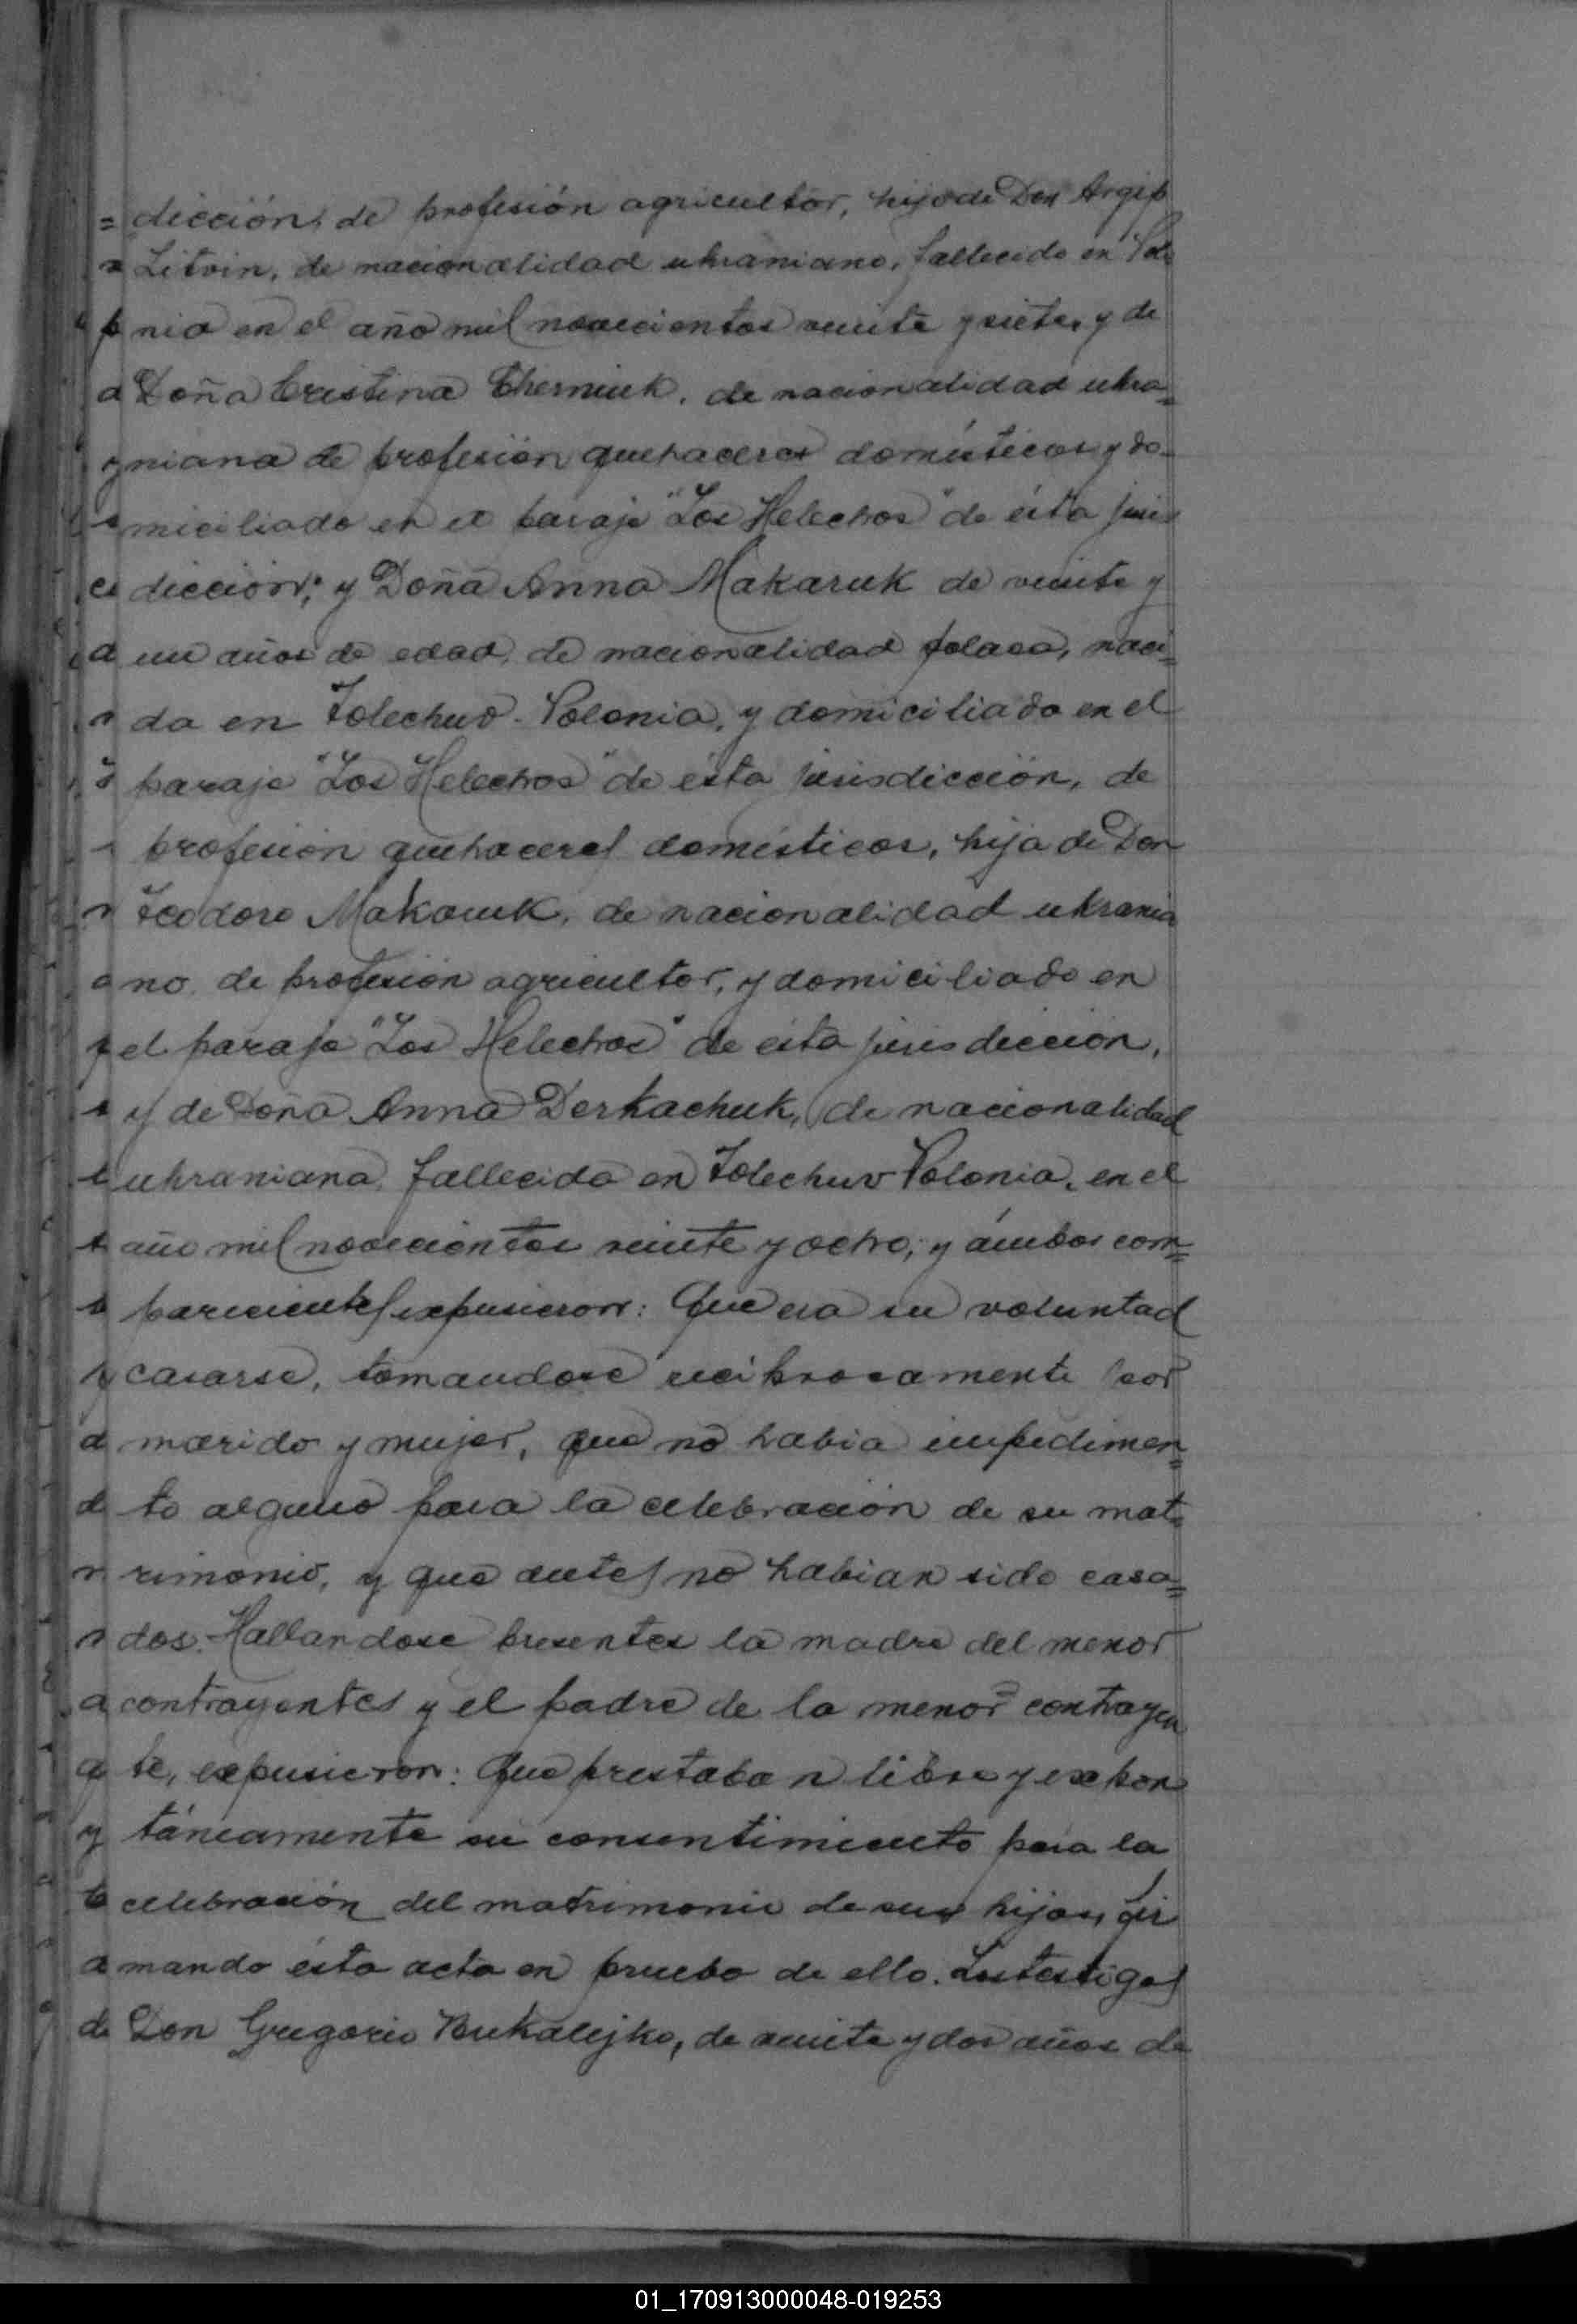 dicción, de profesión agricultor, hijo de Don Argip
Litvin, de nacionalidad ukraniano, fallecido en Polo
nia en el año mil novecientos veinte y siete, y de
Doña Cristina Cherniuk, de nacionalidad ukra=
niana de profesión quehaceres domésticos y do-
miciliado en el paraje "Los Helechos" de ésta juris
dicción; y Doña Anna Makaruk de veinte y
un años de edad, de nacionalidad polaca, naci=
da en Tolechuv - Polonia, y domiciliada en el
paraje "Los Helechos" de ésta jurisdicción, de
profesión quehaceres domésticos, hija de Don
Teodoro Makaruk, de nacionalidad ukrania
no de profesión agricultor, y domiciliado en
el paraje "Los Helechos" de ésta jurisdicción,
y de Doña Anna Derkachuk, de nacionalidad
ukraniana, fallecida en Tolechuv Polonia, en el
año mil novecientos veinte y ocho; y ámbos com=
parecientes expusieron: Que era su voluntad
casarse, tomandose reciprocamente por
marido y mujer, que no habia impedimen=
to alguno para la celebración de su mat=
rimonio, y que antes no habian sido casa=
dos. Hallandose presentes la madre del menor
contrayentes y el padre de la menor contrayen
te, expusieron: Que prestaban libre y expon
táneamente su consentimiento para la
celebración del matrimonio de sus hijos, fir
mando ésta acta en prueba de ello. Los testigos
Don Gregorio Bukalejko, de veinte y dos años de
01_170913000048-019253